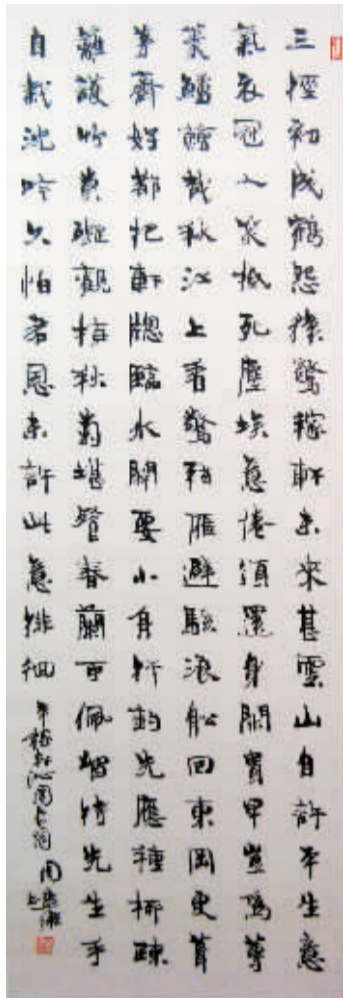 三徑初成鶴怨猿驚稼軒未來甚雲山自許平生意
氣衣冠人笑抵死塵埃意倦須還身閑貴早豈為蓴
羹鱸鱠哉秋江上看驚弦雁避駭浪船回東岡更葺
茅齋好都把軒牕臨水開要小舟行釣先應種柳疎
籬護竹莫礙觀梅秋菊堪餐春蘭可佩留待先生手
自栽沈吟久怕君恩未許此意徘徊
辛稼軒沁園春詞 周